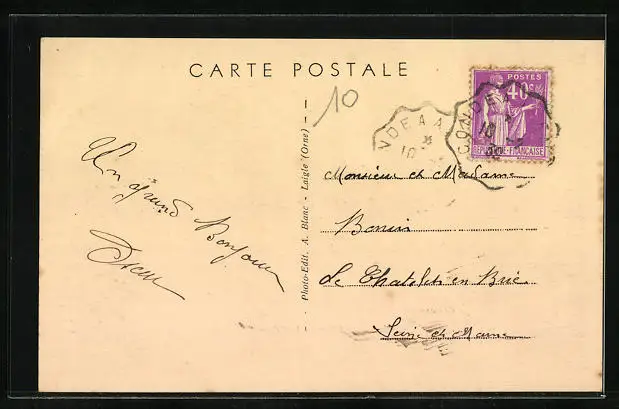 CARTE POSTALE
10
POSTES
40c
REPUBLIQUE-FRANÇAISE
CONDE A
10
V D E A A
10
Un grand Bonjour
Photo-Edit. A. Blanc - Laigle (Orne)
Monsieur et Madame
Le Chatelet en Brie
Seine et Marne